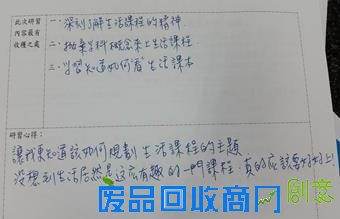 此次研習
內容最有
收穫之處
一、深刻了解生活課程的精神.
二、拋棄學科概念來上生活課程.
三、學習知道如何"看"生活課本
研習心得：
讓我更知道該如何規劃生活課程的主題.
沒想到生活居然是這麼有趣的一門課程,真的應該要好好上
废品回收商门
创意